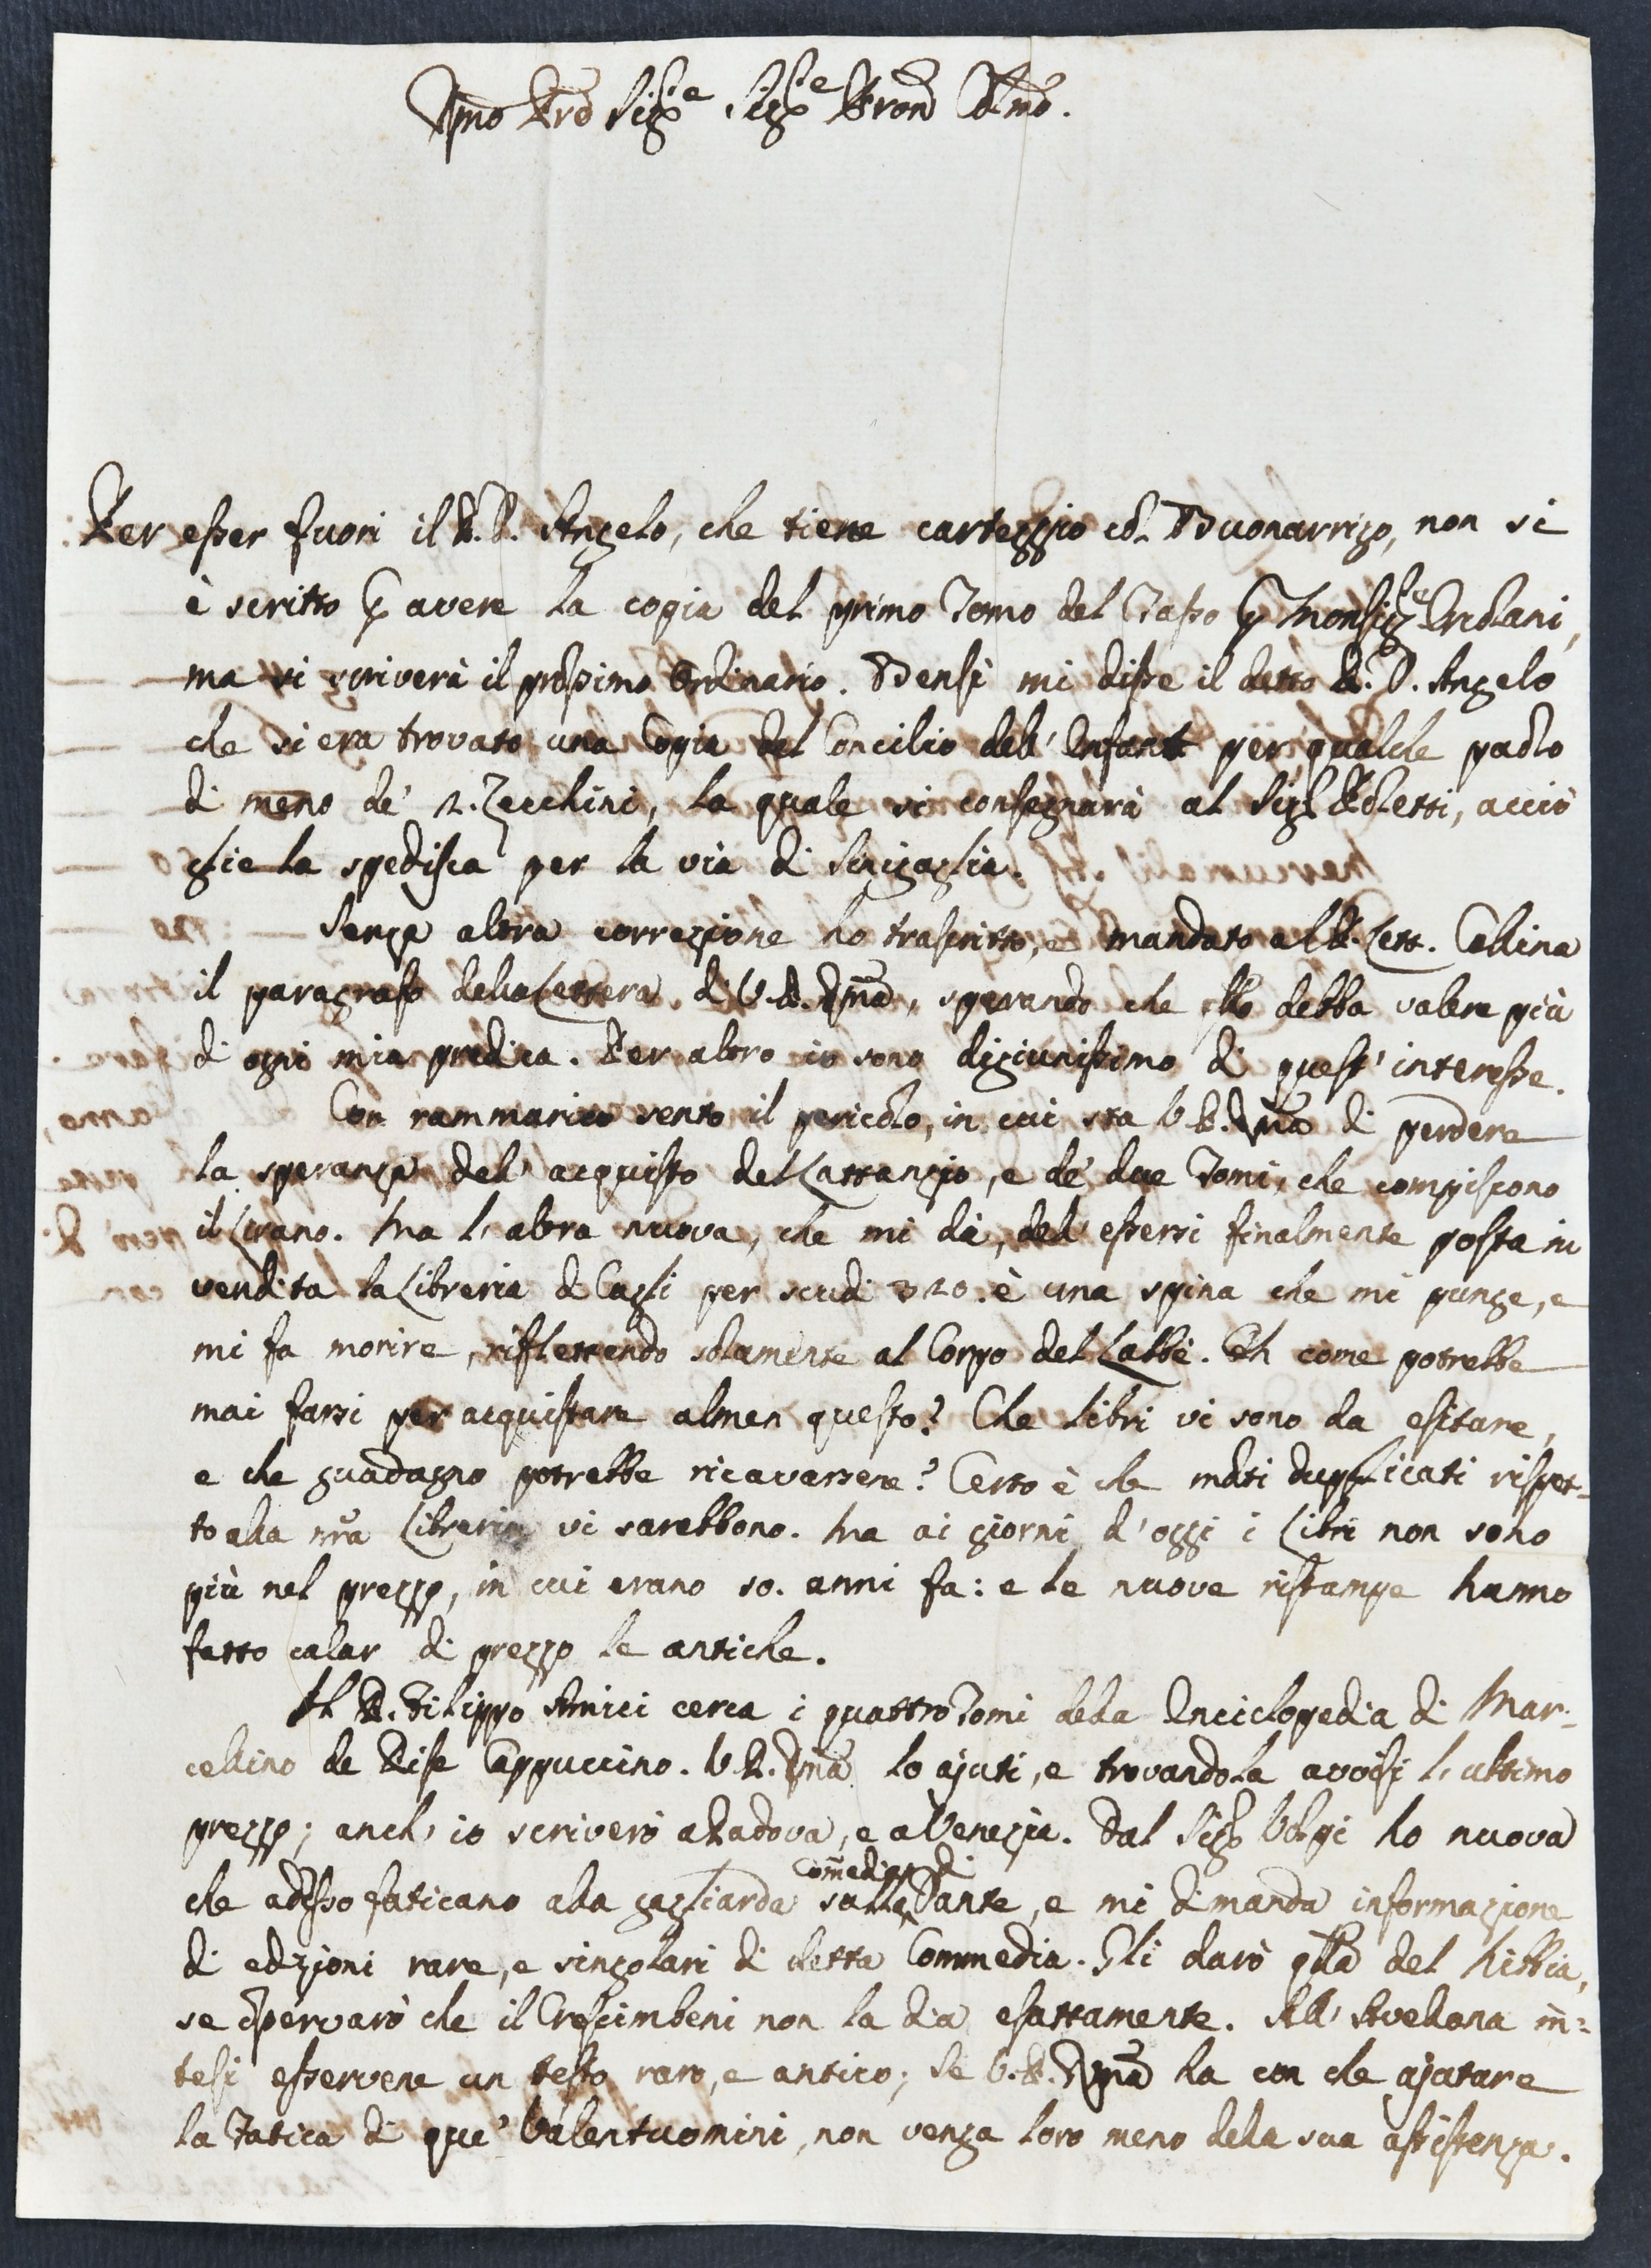 Rmo Pre Sigre Sigre Pron Colmo.
Per esser fuori il P. D. Angelo, che tiene carteggio col Buonarrigo, non si
è scritto p avere la copia del primo Tomo del Tasso p Monsigre Ercolani,
ma si scriverà il prossimo Ordinario. Bensì mi disse il detto P. D. Angelo
che si era trovato una Copia del Concilio dell' Enfant per qualche paolo
di meno de' 2. Zecchini, la quale si consegnarà al Sigr Poletti, acciò
glie la spedisca per la via di Sinigaglia.
Senza altra correzione ho trascritto, e mandato al P. Lett. Collina
il paragrafo della Lettera di V. P. Rma, sperando che esso debba valere più
di ogni mia predica. Per altro io sono digiunissimo di quest' interesse.
Con rammarico sento il pericolo, in cui sta V. P. Rma di perdere
la speranza dell' acquisto del Lattanzio, e de' due Tomi, che compiscono
il Lirano. Ma l' altra nuova, che mi dà, dell' essersi finalmente posta in
vendita la Libreria di Cagli per scudi 320. è una spina che mi punge, e
mi fa morire, riflettendo solamente al Corpo del Labbè. Eh come potrebbe
mai farsi per acquistare almen questo? Che libri vi sono da esitare,
e che guadagno potrebbe ricavarsene? Certo è che molti dupplicati rispet-
to alla nra Libreria vi sarebbono. Ma ai giorni d' oggi i Libri non sono
più nel prezzo, in cui erano 50. anni fa: e le nuove ristampe hanno
fatto calar di prezzo le antiche.
Il P. Filippo Amici cerca i quattro Tomi della Enciclopedia di Mar-
cellino de Pise Cappuccino. V. P. Rma lo ajuti, e trovandola avvisi l' ultimo
prezzo; anch' io scriverò a Padova, e a Venezia. Dal Sigr Volpi ho nuova
Comedia di
che adesso faticano alla gagliarda sulla Dante, e mi dimanda informazione
di edizioni rare, e singolari di detta Commedia. Gli darò qlla del Nibbia,
se osservarò che il Crescimbeni non la dia esattamente. All' Avellana in-
tesi esservene un testo raro, e antico; se V. P. Rma ha con che ajutare
la Fatica di que' Valentuomini, non venga loro meno della sua assistenza.